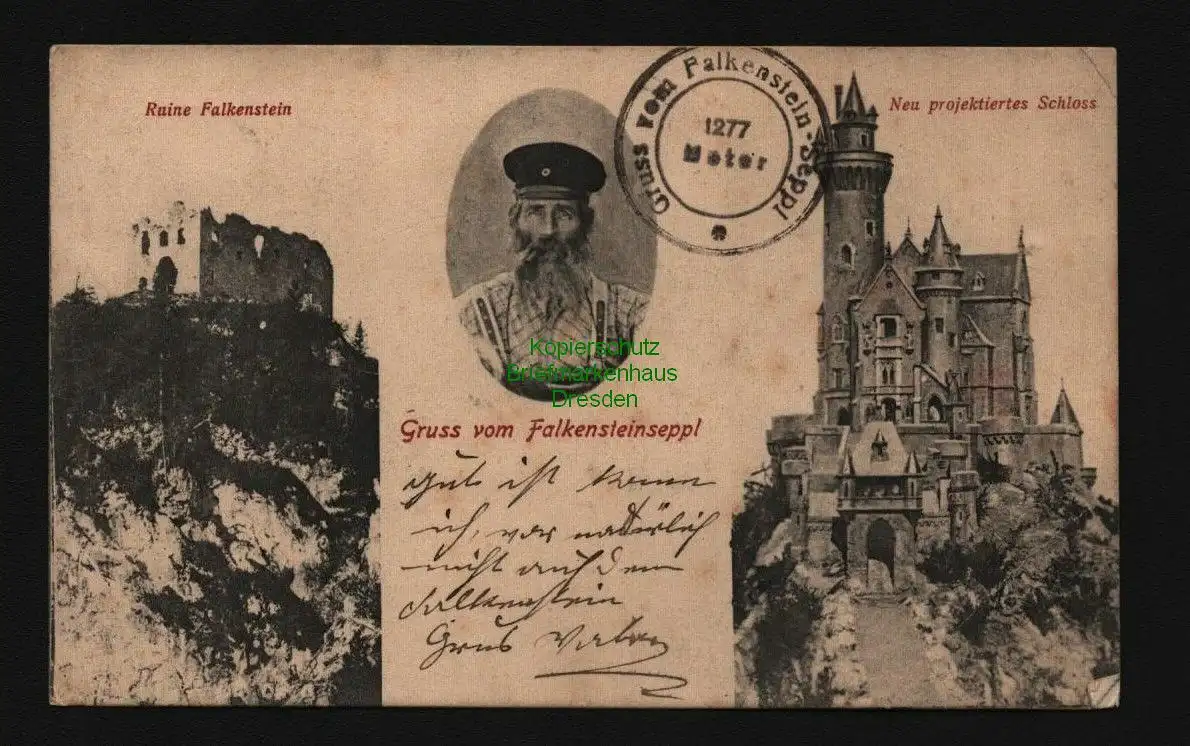 Ruine Falkenstein
Gruss vom Falkenstein-Seppl
1277
Meter
Neu projektiertes Schloss
Kopierschutz
Briefmarkenhaus
Dresden
Gruss vom Falkensteinseppl
gut ist
ich, war natürlich
nicht auf dem
Falkenstein
Grus